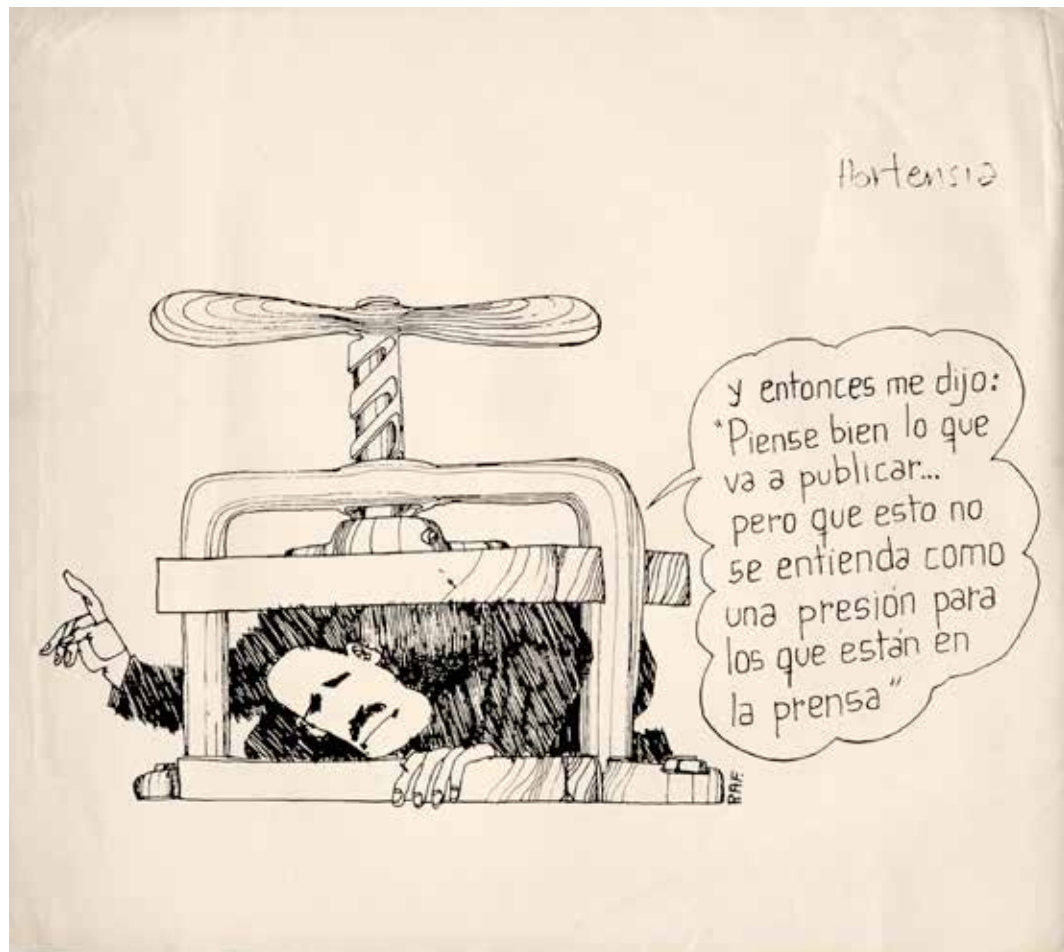 Hortensia
y entonces me dijo:
"Piense bien lo que
va a publicar...
pero que esto no
se entienda como
una presión para
los que están en
la prensa"
R.A.F.